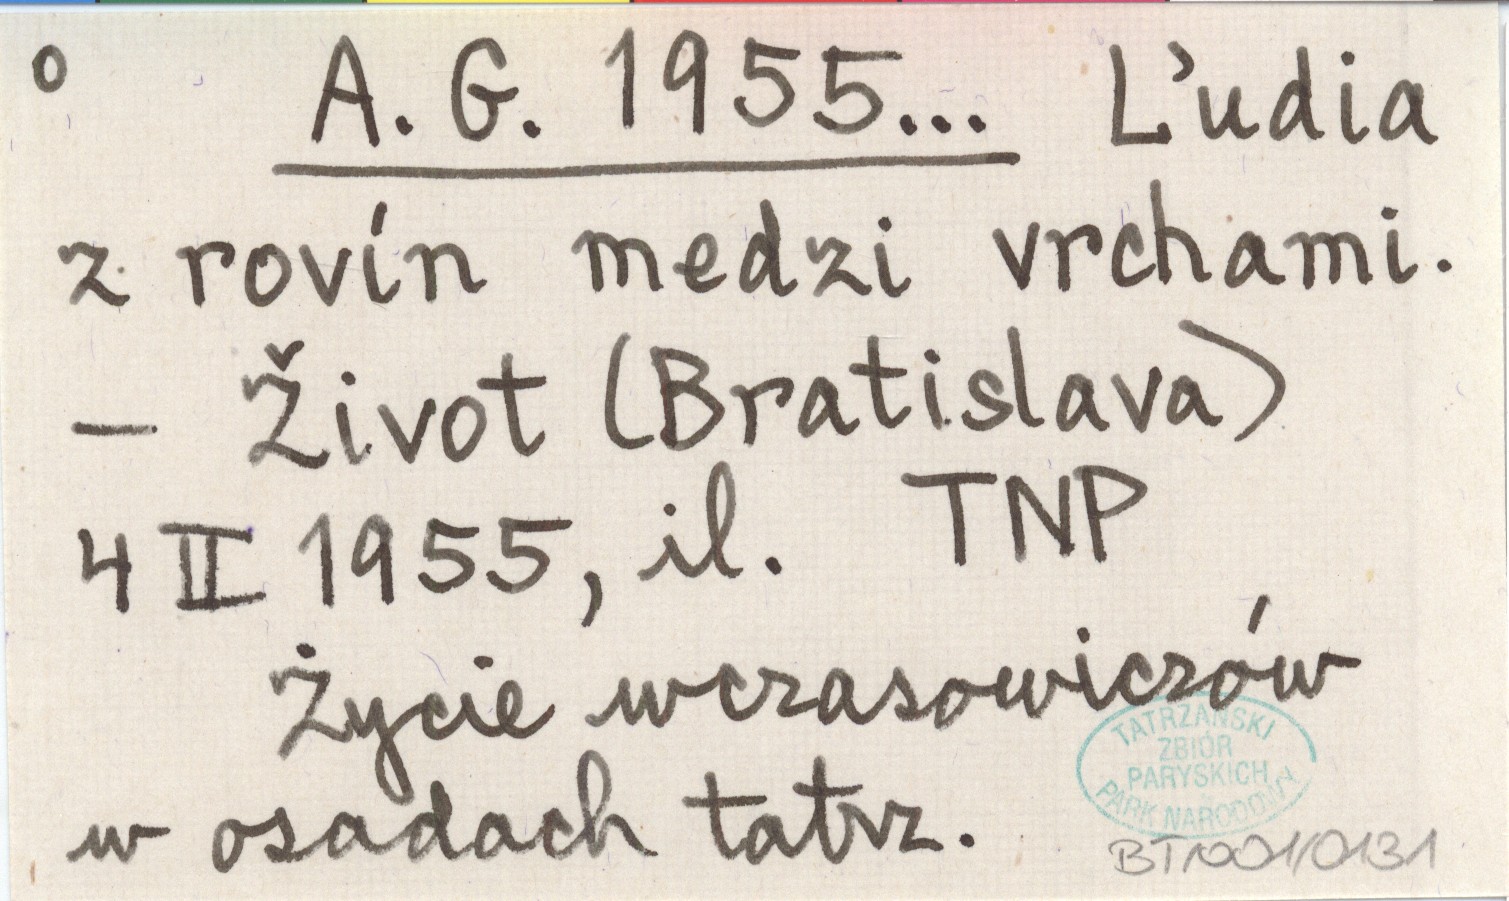 o A. G. 1955... Ľudia
z rovín medzi vrchami.
— Život (Bratislava)
4 II 1955, il. TNP
Życie wczasowiczów
w osadach tatrz.
TATRZAŃSKI
ZBIÓR
PARYSKICH
PARK NARODOWY
BT/001/0131